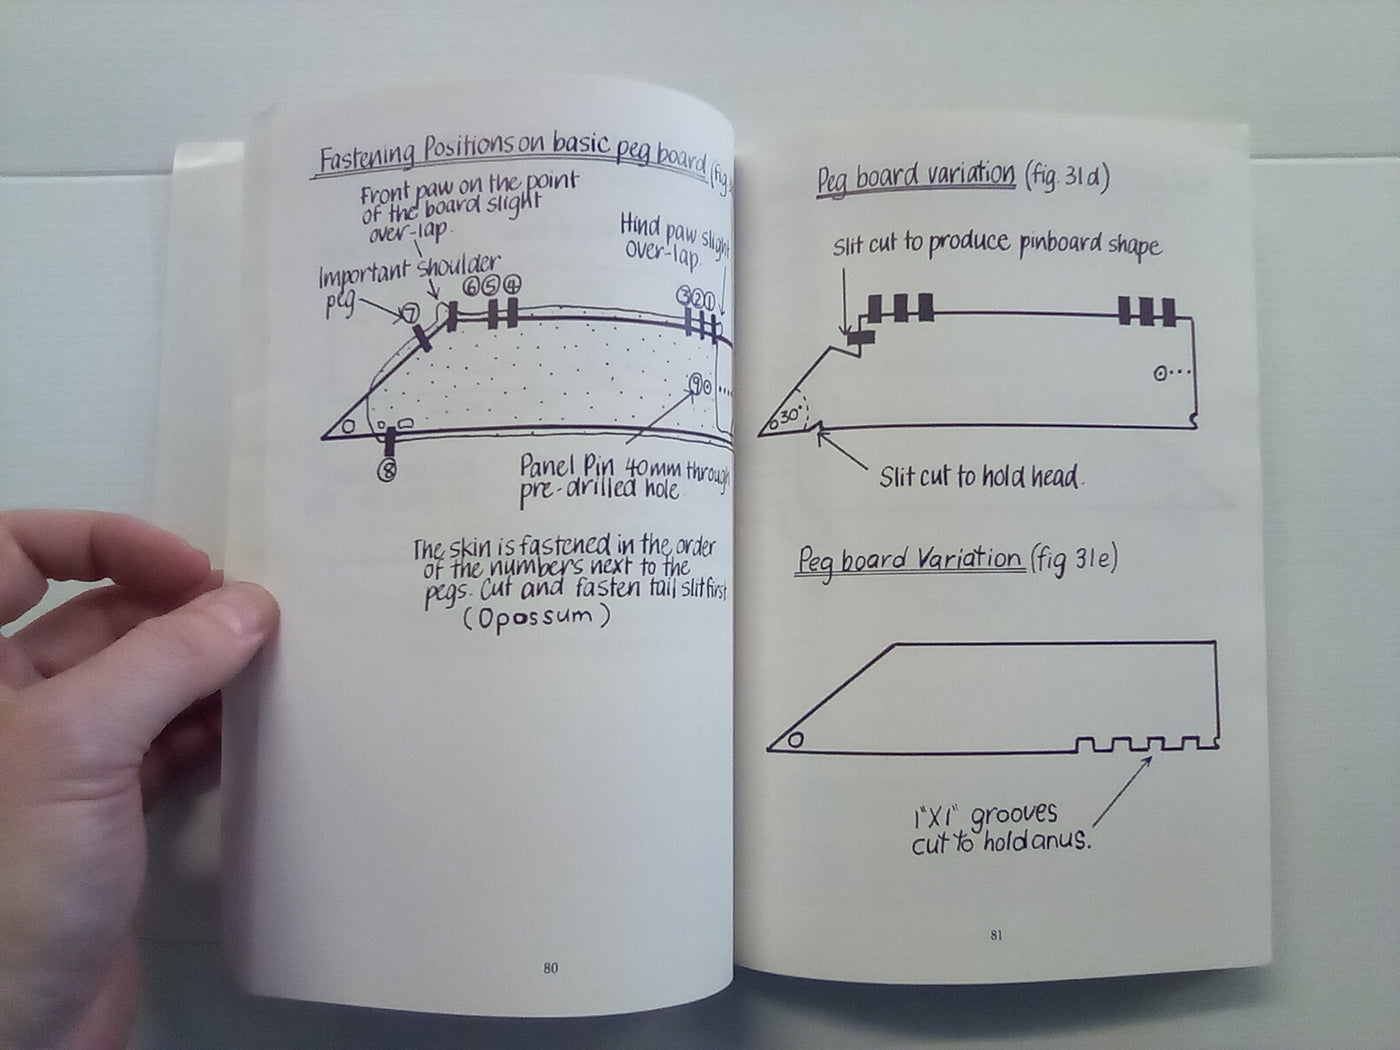 Fastening Positions on basic peg board (fig
Front paw on the point
of the board slight
over-lap.
Hind paw slight
over-lap.
Important shoulder
peg
⑦
⑥⑤④
③②①
⑨
⑧
Panel Pin 40mm through
pre-drilled hole
The skin is fastened in the order
of the numbers next to the
pegs. Cut and fasten tail slit first.
(Opossum)
80
Peg board variation (fig. 31d)
Slit cut to produce pinboard shape
30°
Slit cut to hold head.
Peg board Variation (fig 31e)
1"X1" grooves
cut to hold anus.
81